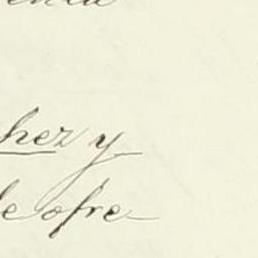 hez y
le ofre-